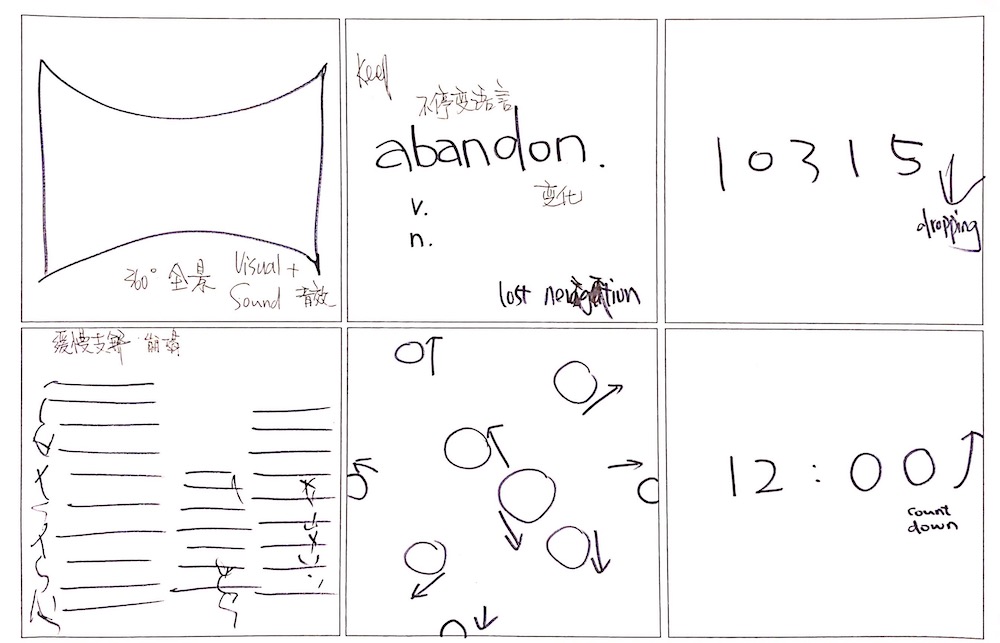 360° 全景 Visual +
Sound 音效
Keep
不停变语言
abandon.
变化
v.
n.
lost
10315
dropping
缓慢支解 崩溃
12:00
count
down